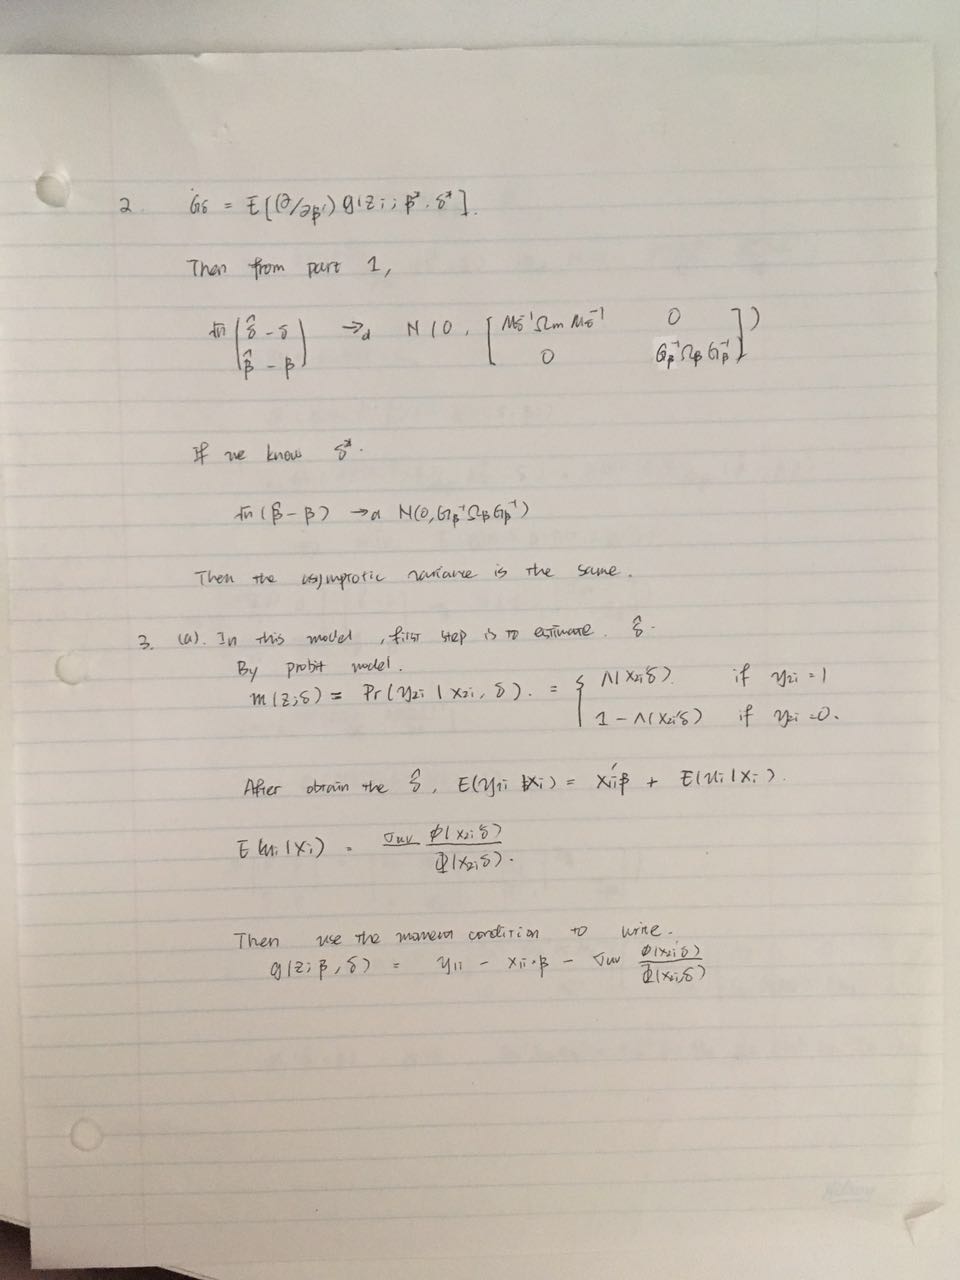 2. Gδ = E[(∂/∂β') g(zi; β*, δ*].
Then from part 1,
√n (δ̂ - δ
β̂ - β) →d N(0, [Mδ⁻¹ Ωm Mδ⁻¹ 0
0 Gβ⁻¹ Ωβ Gβ⁻¹])
If we know δ*.
√n (β̂ - β) →d N(0, Gβ⁻¹ Ωβ Gβ⁻¹)
Then the asymptotic variance is the same.
3. (a). In this model, first step is to estimate δ̂.
By probit model.
m(z;δ) = Pr(y2i | x2i, δ). = { Λ(x2i'δ). if y2i = 1
1 - Λ(x2i'δ) if y2i = 0.
After obtain the δ̂, E(y1i | Xi) = x1i'β + E(ui | Xi).
E(ui | Xi) = σuv ϕ(x2i'δ) / Φ(x2i'δ).
Then use the moment condition to write.
g(z; β, δ) = y1i - x1i·β - σuv ϕ(x2i'δ) / Φ(x2i'δ)